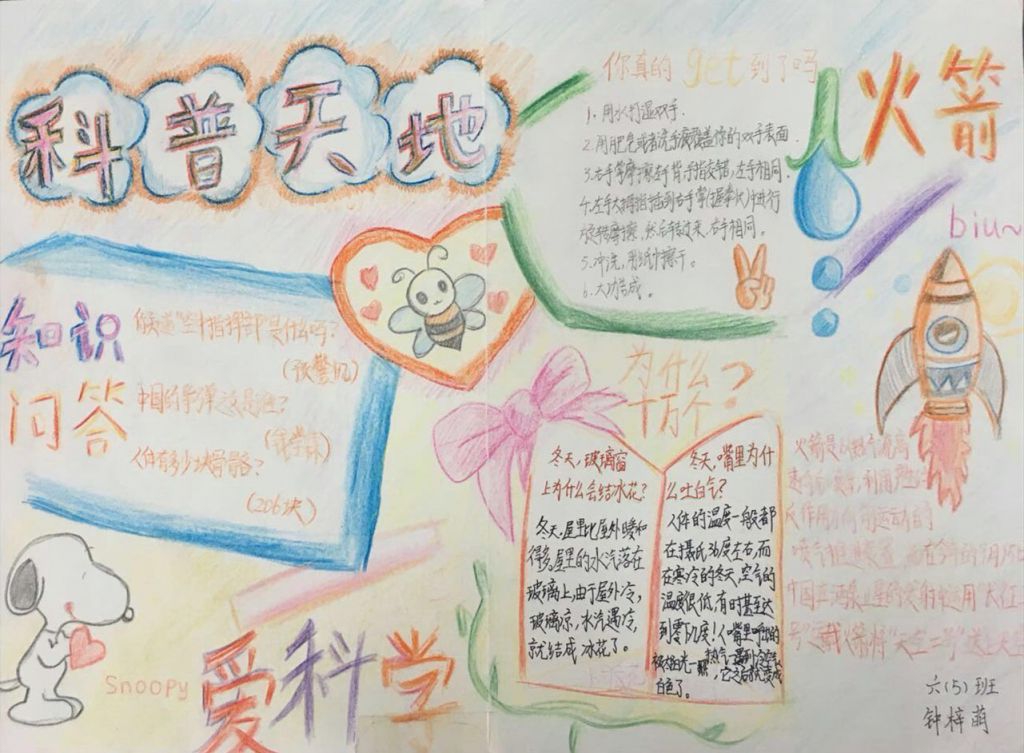 科普天地
你真的get到了吗
1. 用水打湿双手.
2. 用肥皂或者洗手液覆盖你的双手表面.
3. 右手掌摩擦左手背,手指交错,左手相同.
4. 左手大拇指插到右手掌(握拳状)中进行
旋转摩擦,然后转过来,右手相同。
5. 冲洗,用纸巾擦干。
6. 大功告成。
火箭
biu~
知识
问答
你知道"空中指挥部"是什么吗?
(预警机)
中国的导弹之父是谁?
(钱学森)
人体有多少块骨骼?
(206块)
为什么
十万个?
冬天,玻璃窗
上为什么会结冰花?
冬天,屋里比屋外暖和
得多,屋里的水汽落在
玻璃上,由于屋外冷,
玻璃凉,水汽遇冷,
就结成冰花了。
冬天,嘴里为什
么吐白气?
人体的温度一般都
在摄氏36度左右,而
在寒冷的冬天,空气的
温度很低,有时甚至达
到零下几度!人嘴里呼出的
热气遇到冷空气
白色了。
火箭是以热气流高
反作用力向前运动的
喷气推进装置
中国
号"运载火箭将"天空二号"
Snoopy
爱科学
六(5)班
钟梓萌